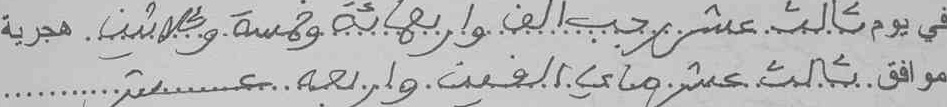 في يوم ثالث عشر رجب الف واربعمائة وخمسة وثلاثين هجرية
موافق ثالث عشر ماي الفين واربعة عشر